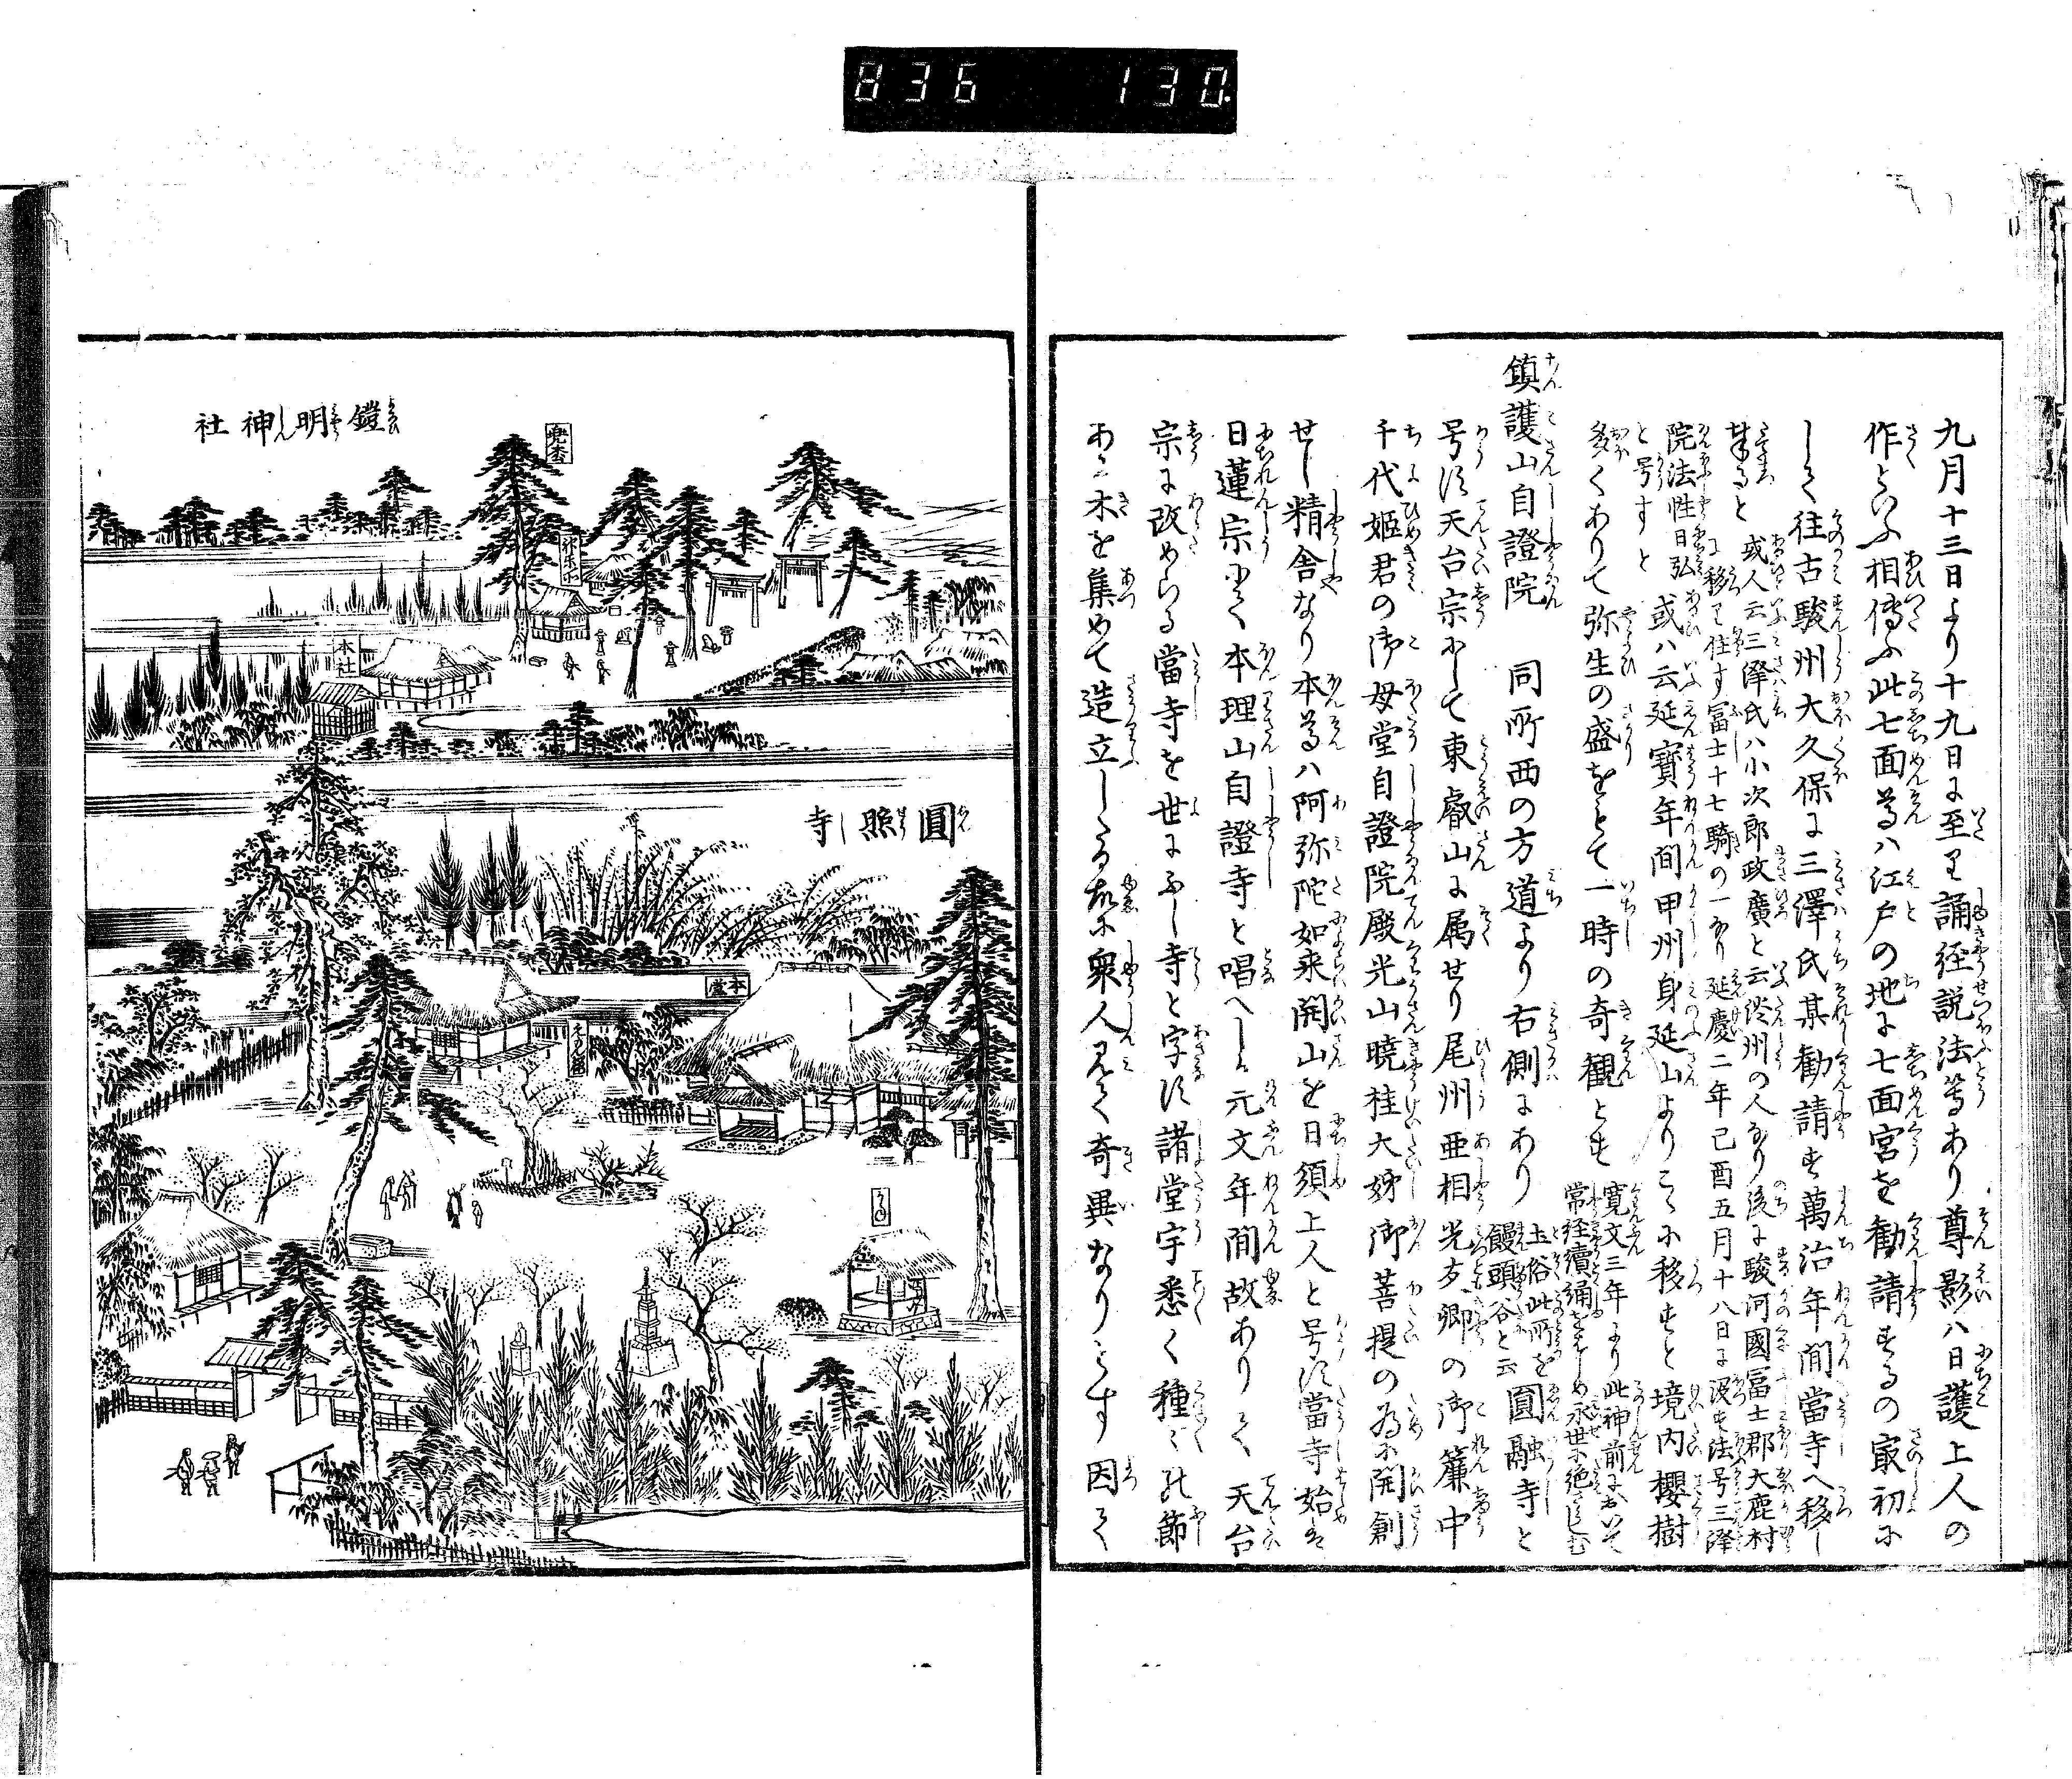 836 130
九月十三日より十九日に至り誦経説法等あり尊影ハ日護上人の
作といふ相傳ふ此七面尊ハ江戸の地に七面宮を勧請するの最初に
して往古駿州大久保に三澤氏某勧請す萬治年間當寺へ移し
奉ると
或人云三澤氏ハ小次郎政廣と云淡州の人なり後に駿河國冨士郡大鹿村
に移り住す冨士十七騎の一なり延慶二年己酉五月十八日に没す法号三澤
院法性日弘
と号すと
或ハ云延寶年間甲州身延山よりこゝに移すと境内櫻樹
多くありて弥生の盛をとて一時の奇観とす
寛文三年より此神前において
常経讀誦をはしめ永世不絶さらしむ
鎮護山自證院 同所西の方道より右側にあり
土俗此所を
饅頭谷と云
圓融寺と
号す天台宗にして東叡山に属せり尾州亜相光友卿の御簾中
千代姫君の御母堂自證院殿光山暁桂大姉御菩提の為に開創
せし精舎なり本尊ハ阿弥陀如来開山を日須上人と号す當寺始は
日蓮宗にて本理山自證寺と唱へしか元文年間故ありて天台
宗に改めらる當寺を世にふし寺と字す諸堂宇悉く種々の節
ある木を集めて造立したる故に衆人見て奇異なりとす因て
鎧明神社
兜松
本社
圓照寺
本堂